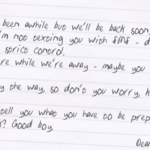 been awhile but we'll be back soon,
I'm not texting you with
strict control.
're while we're away - maybe you
the way, so don't you worry, h
tell you what you have to be prep
? Good boy.
Dear